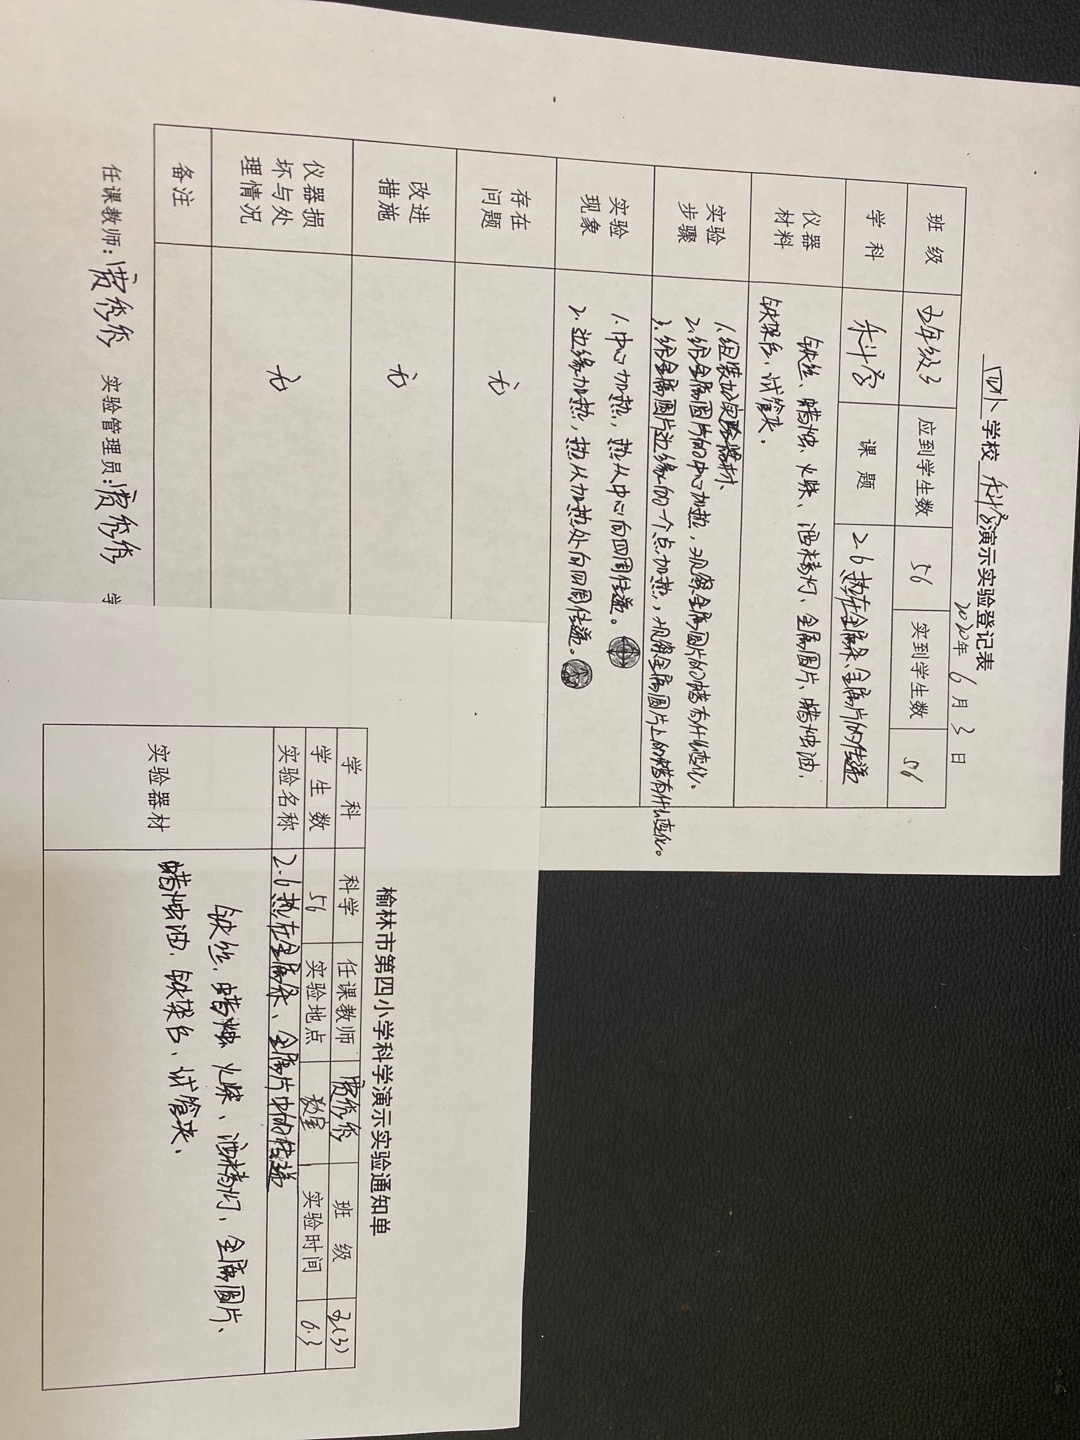 四小学校 科学演示实验登记表
2020年 6月 3日
班 级 五年级3 应到学生数 56 实到学生数 56
学 科 科学 课 题 2.6热在金属条、金属片的传递
仪器材料 铁丝、蜡烛、火柴、酒精灯、金属圆片、蜡烛油、
铁架台、试管夹.
实验步骤 1.组装好实验器材、
2.给金属圆片的中心加热，观察金属圆片的蜡有什么变化。
3.给金属圆片边缘的一个点加热，观察金属圆片上的蜡有什么变化。
实验现象 1.中心加热，热从中心向四周传递。
2.边缘加热，热从加热处向四周传递。
存在问题 无
改进措施 无
仪器损坏与处理情况 无
备注
任课教师：贾秀秀 实验管理员：贾秀秀 学
榆林市第四小学科学演示实验通知单
学 科 科学 任课教师 贾秀秀 班 级 五(3)
学 生 数 56 实验地点 教室 实验时间 6.3
实验名称 2.6热在金属条、金属片中的传递
实验器材 铁丝、蜡烛、火柴、酒精灯、金属圆片、
蜡烛油、铁架台、试管夹.